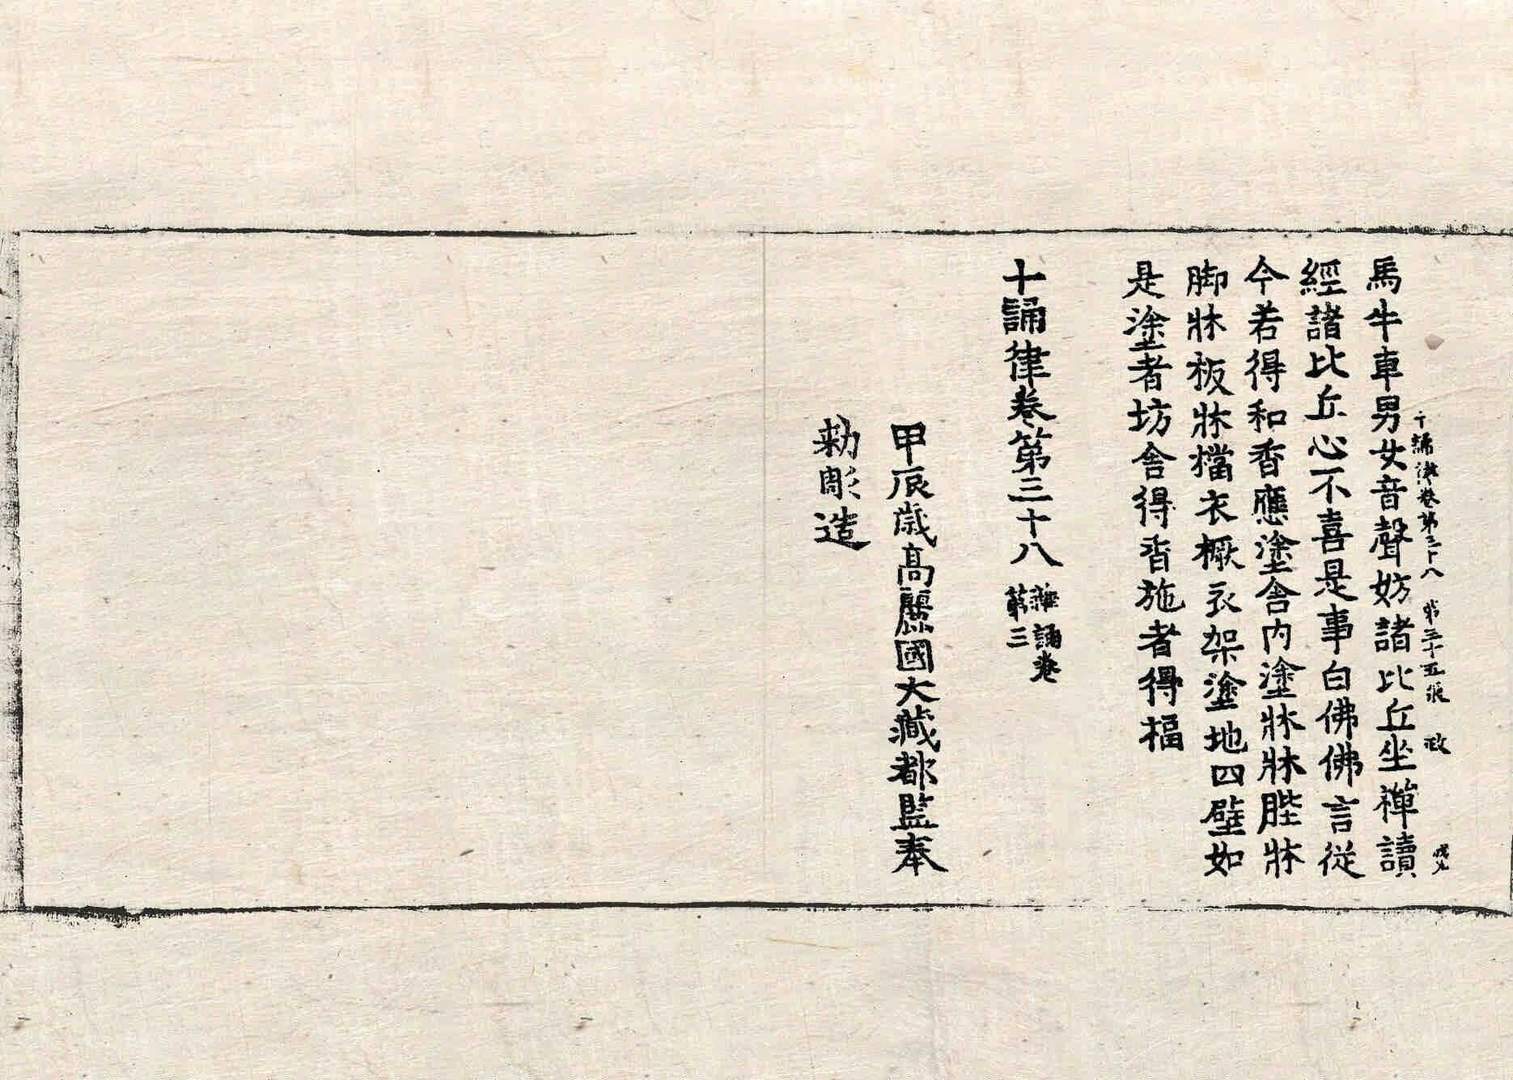 十誦律卷第三十八 第三十五張 政
馬牛車男女音聲妨諸比丘坐禪讀
經諸比丘心不喜是事白佛佛言從
今若得和香應塗舍內塗牀牀䏶牀
脚牀板牀檔衣橛衣架塗地四壁如
是塗者坊舍得香施者得福
十誦律卷第三十八 雜誦卷
第三
甲辰歲高麗國大藏都監奉
勑彫造